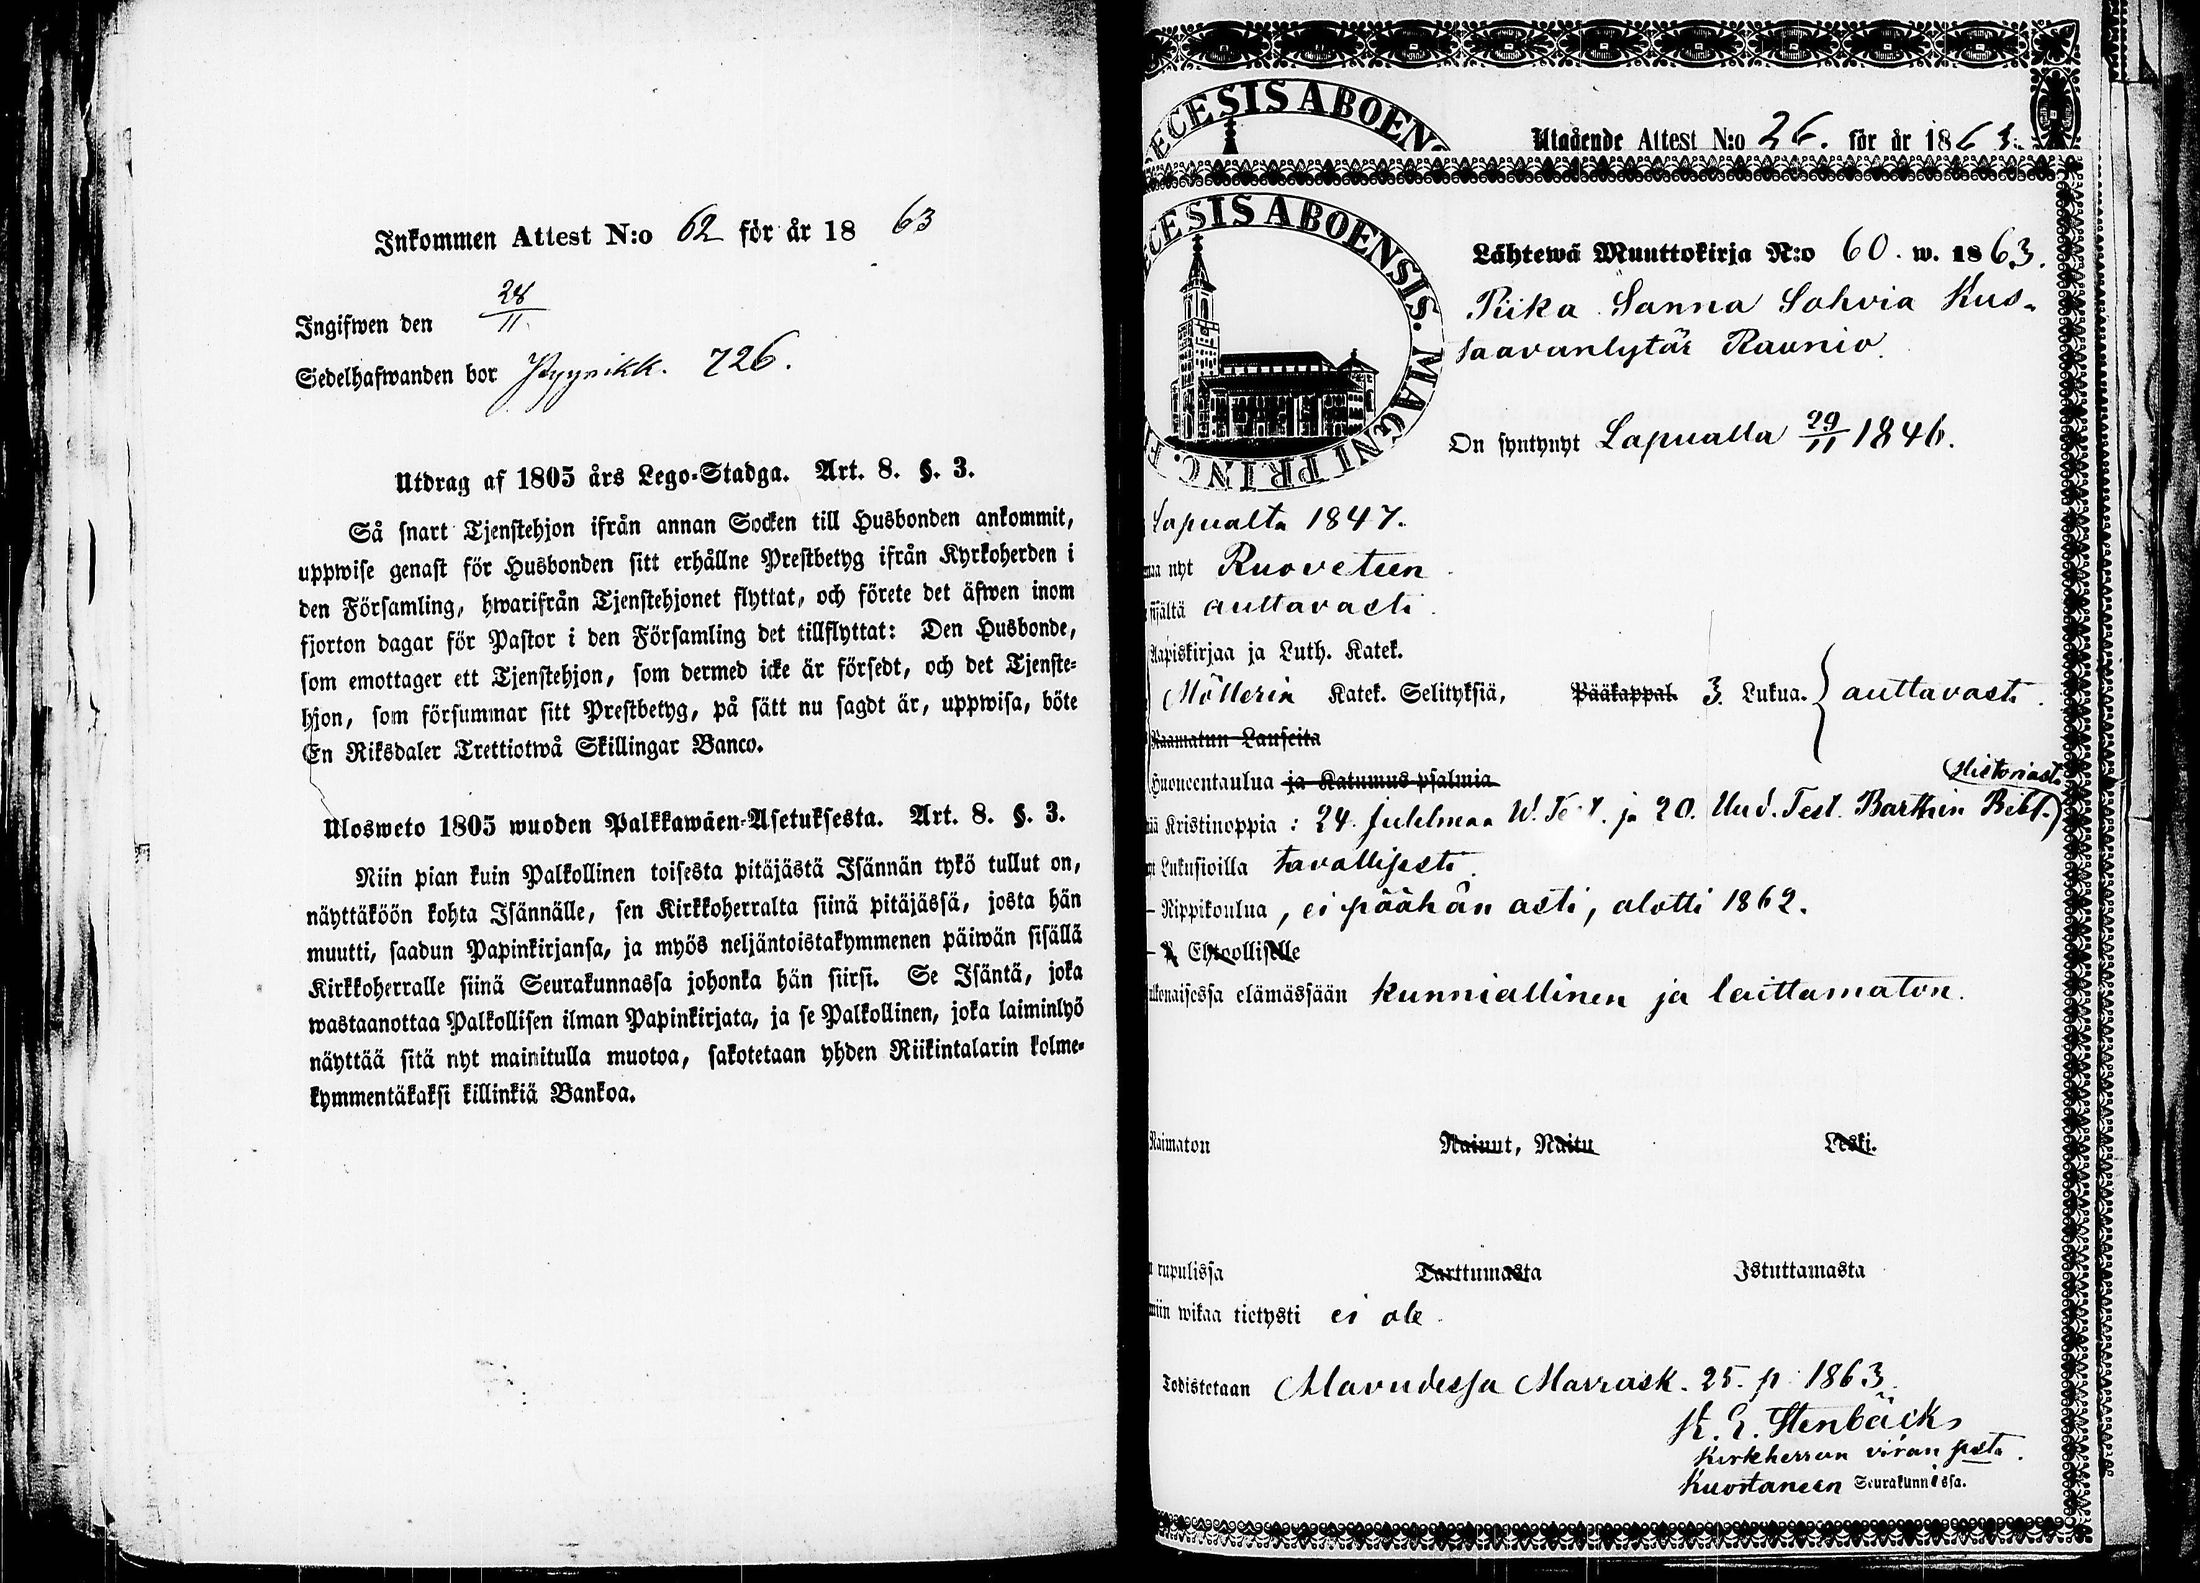 Inkommen Attest N:o 62 för år 18 63
Ingifwen den 28/11.
Sedelhafwanden bor Pyynikk. 726.
Utdrag af 1805 års Lego-Stadga. Art. 8. §. 3.
Så snart Tjenstehjon ifrån annan Socken till Husbonden ankommit,
uppwise genast för Husbonden sitt erhållne Prestbetyg ifrån Kyrkoherden i
den Församling, hwarifrån Tjenstehjonet flyttat, och förete det äfwen inom
fjorton dagar för Pastor i den Församling det tillflyttat: Den Husbonde,
som emottager ett Tjenstehjon, som dermed icke är försedt, och det Tjenste-
hjon, som försummar sitt Prestbetyg, på sätt nu sagdt är, uppwisa, böte
En Riksdaler Trettiotwå Skillingar Banco.
Ulosweto 1805 wuoden Palkkawäen-Asetuksesta. Art. 8. §. 3.
Niin pian kuin Palkollinen toisesta pitäjästä Isännän tykö tullut on,
näyttäköön kohta Isännälle, sen Kirkkoherralta siinä pitäjässä, josta hän
muutti, saadun Papinkirjansa, ja myös neljäntoistakymmenen päiwän sisällä
Kirkkoherralle siinä Seurakunnassa johonka hän siirsi. Se Isäntä, joka
wastaanottaa Palkollisen ilman Papinkirjata, ja se Palkollinen, joka laiminlyö
näyttää sitä nyt mainitulla muotoa, sakotetaan yhden Riikintalarin kolme-
kymmentäkaksi killinkiä Bankoa.
ECESIS ABOEN
Utgående Attest N:o 26. för år 1863.
ECESIS ABOENSIS. MAGNI PRINC. F
Lähtewä Muuttokirja N:o 60. w. 1863.
Piika Sanna Sohvia Kus-
taavantytär Raunio.
On syntynyt Lapualla 29/11 1846.
Lapualta 1847.
nyt Ruoveteen
sisältä auttavasti.
Aapiskirjaa ja Luth. Katek.
Möllerin Katek. Selityksiä, Pääkappal. 3. Lukua. } auttavasti.
Raamatun Lauseita
Huoneentaulua ja Katumus psalmia
(Historiasta
Kristinoppia: 24. juhlmaa W. Test. ja 20. Uud. Test. Barthin Bibl.)
Lukusioilla tavallisesti.
Rippikoulua, ei päähän asti, alotti 1862.
Ehtoolliselle
elämässään kunniallinen ja laittamaton.
Naimaton Nainut, Naitu Leski.
rupulissa Tarttumasta Istuttamasta
wikaa tietysti ei ole.
Todistetaan Alavudessa Marrask. 25. p. 1863.
K. E. Stenbäck
Kirkherran viran pusta.
Kuortaneen Seurakunnissa.